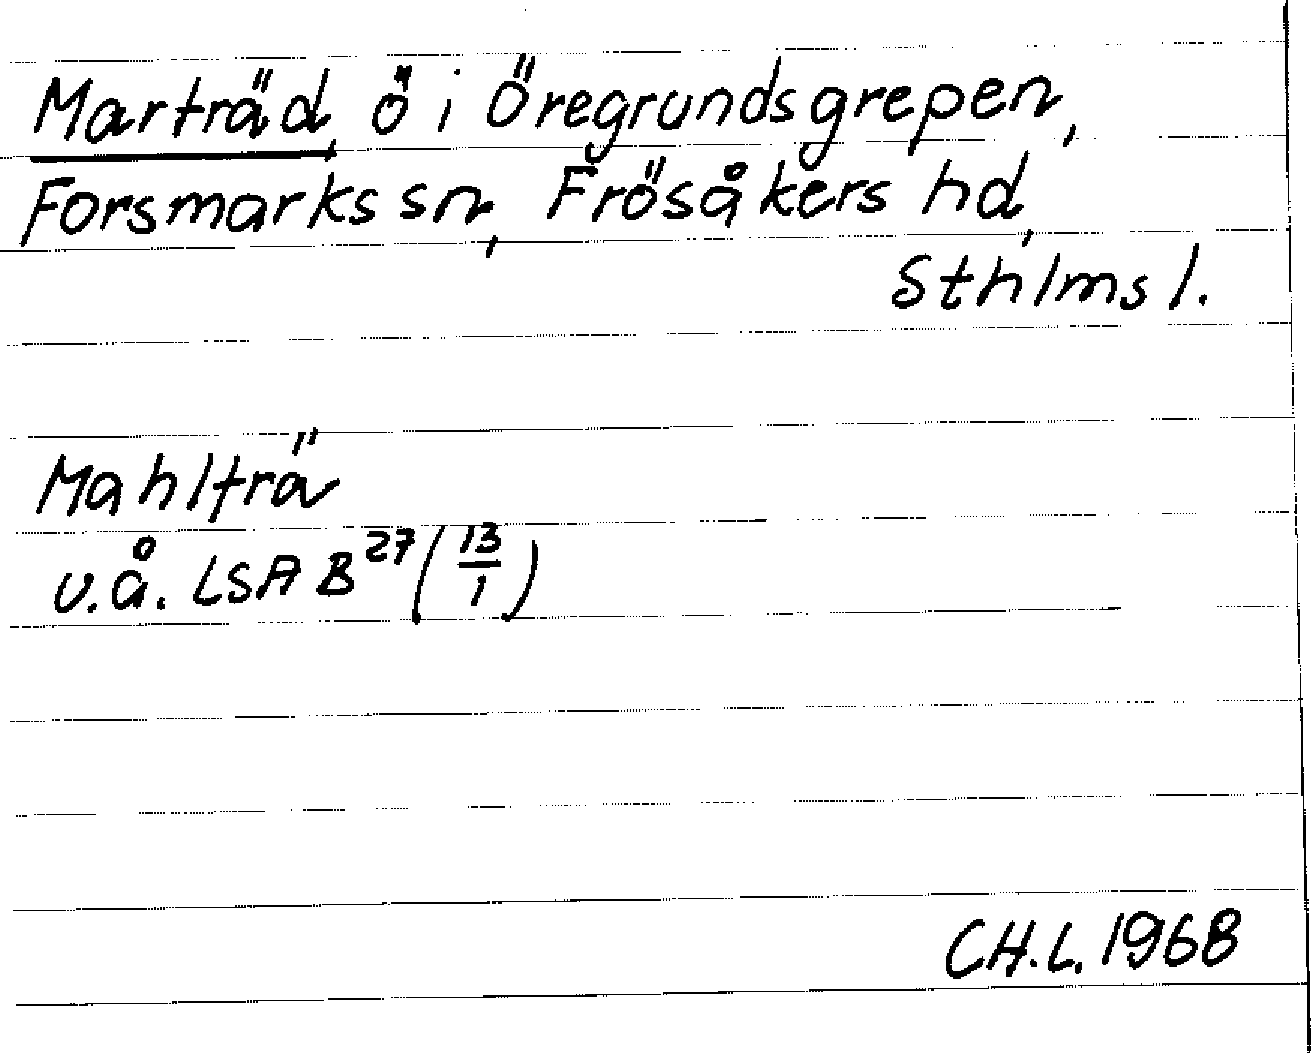 Marträd, ö i Öregrundsgrepen,
Forsmarks sn, Frösåkers hd,
Sthlms l.
Mahlträ
u.å. LSA B²⁷ (13/1)
CH.L. 1968